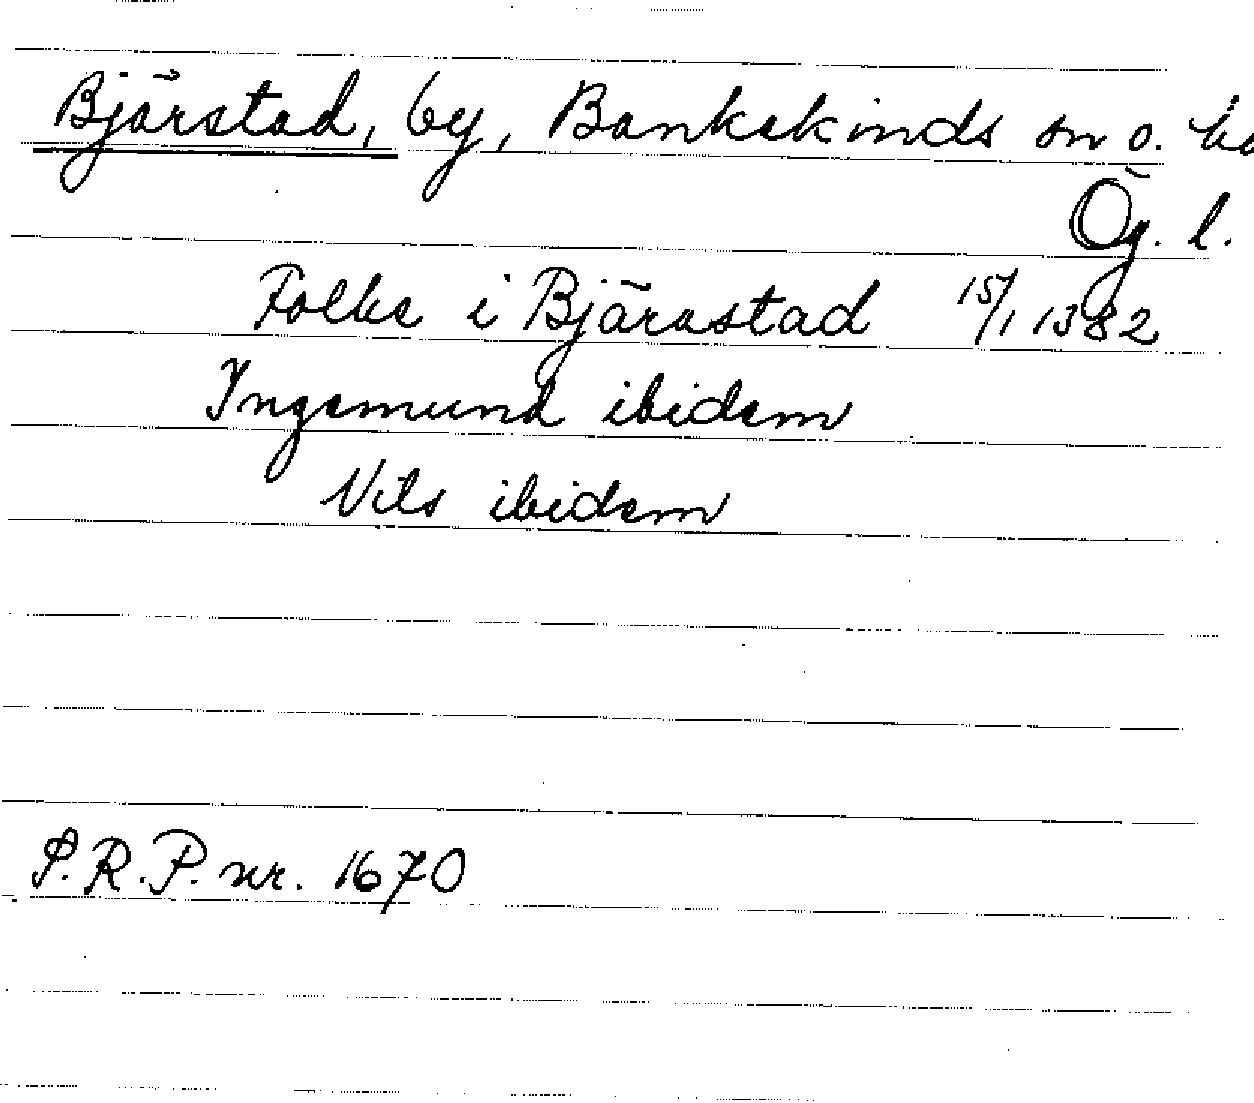 Bjärstad, by, Bankekinds sn o. hd
Ög. l.
Folke i Bjärastad 15/1 1382
Ingemund ibidem
Nils ibidem
S.R.P. nr. 1670